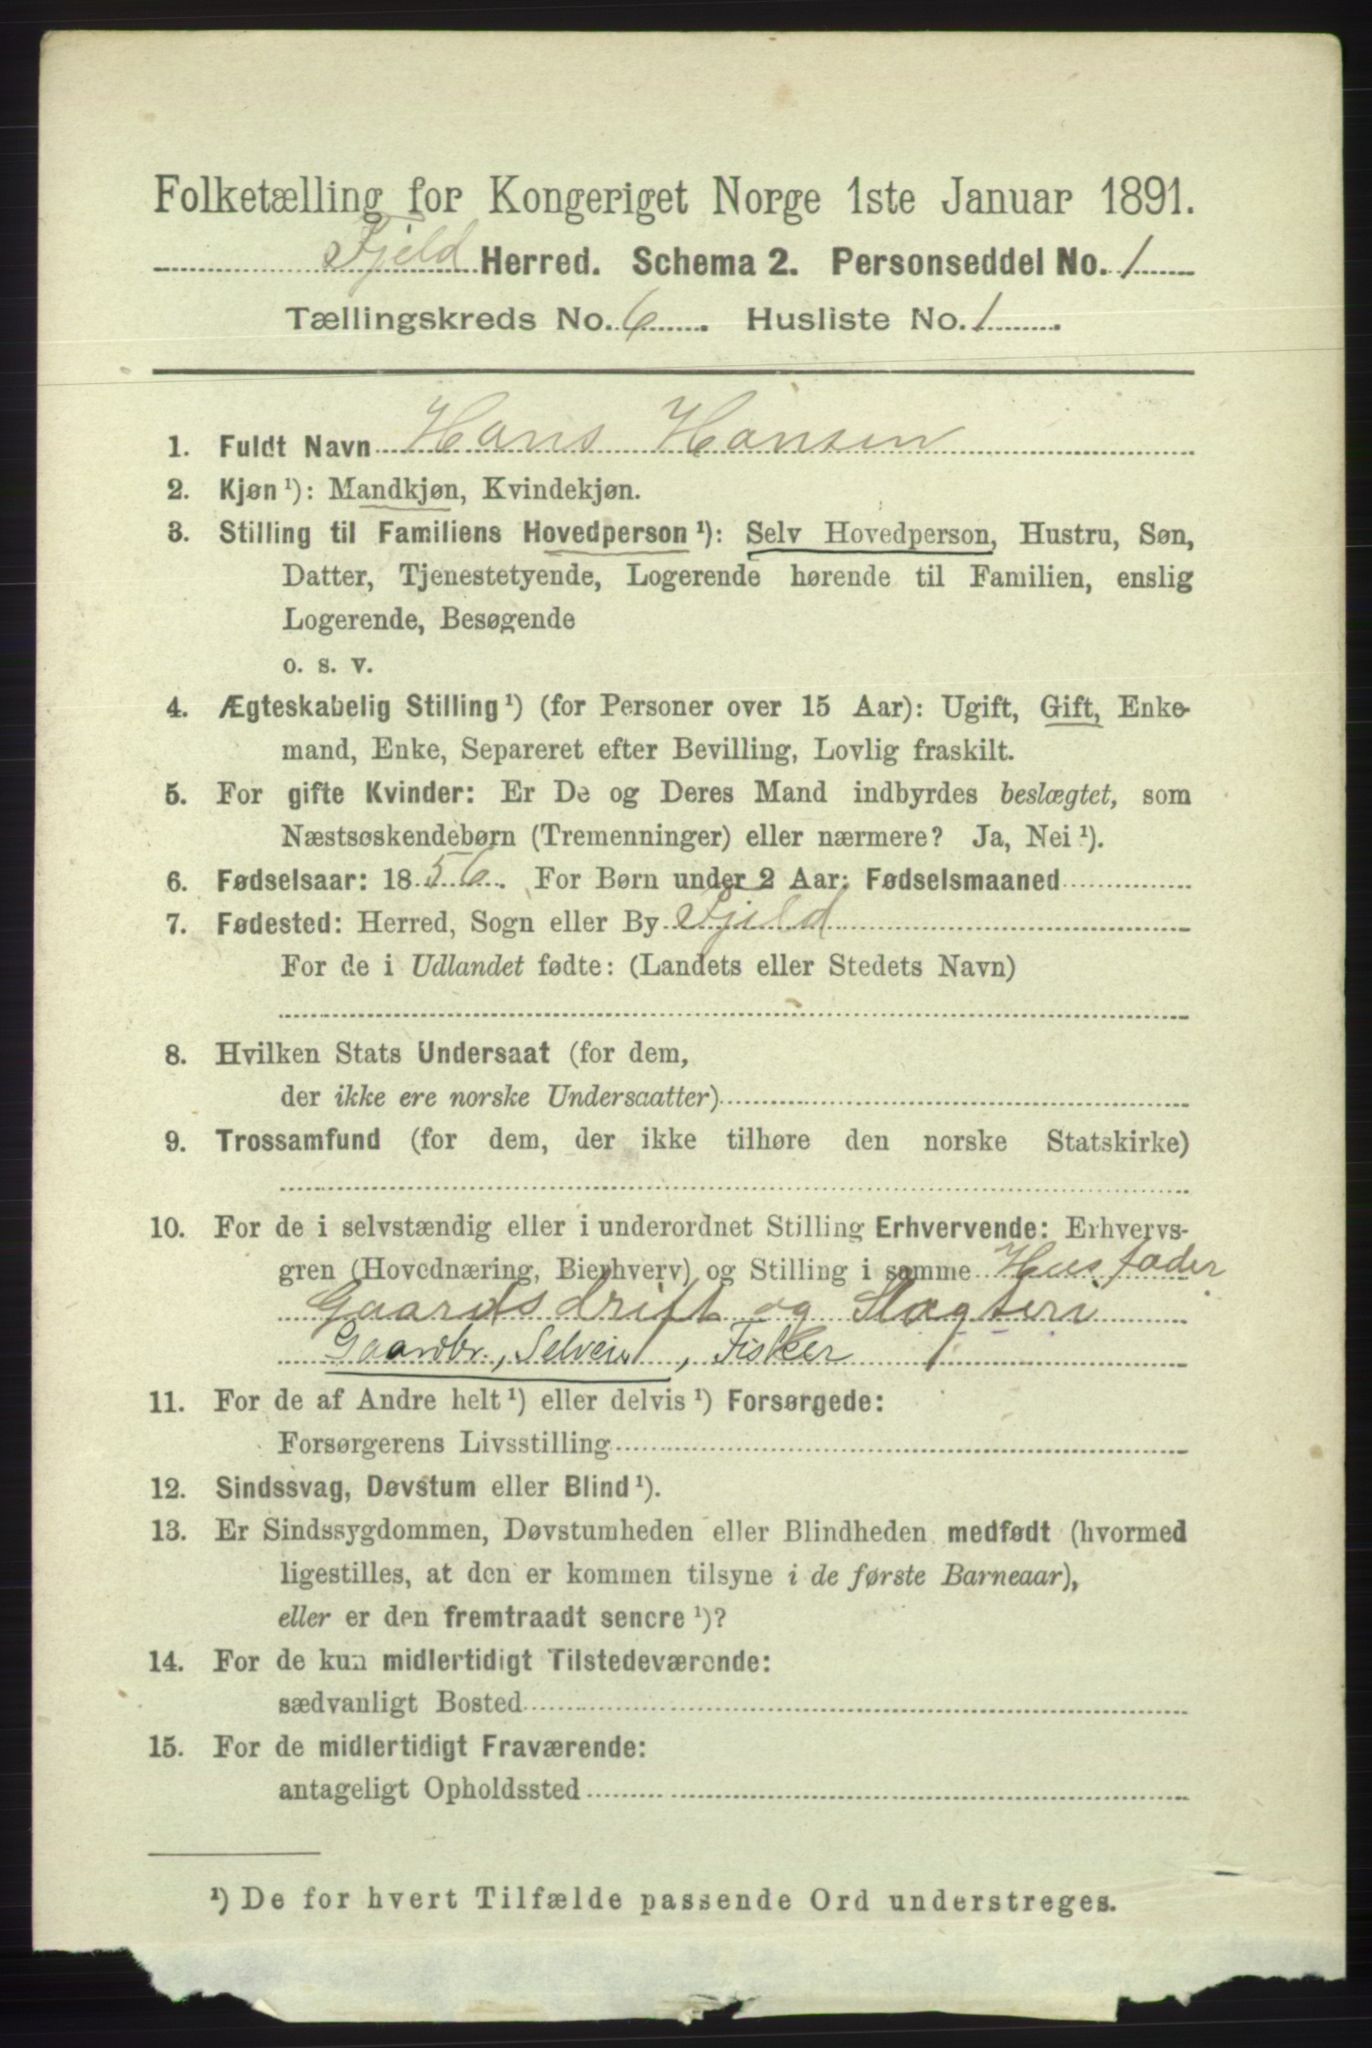 Folketælling for Kongeriget Norge 1ste Januar 1891.
Fjeld Herred. Schema 2. Personseddel No. 1
Tællingskreds No. 6. Husliste No. 1.
1. Fuldt Navn Hans Hansen
2. Kjøn ¹): Mandkjøn, Kvindekjøn.
3. Stilling til Familiens Hovedperson ¹): Selv Hovedperson, Hustru, Søn,
Datter, Tjenestetyende, Logerende hørende til Familien, enslig
Logerende, Besøgende
o. s. v.
4. Ægteskabelig Stilling ¹) (for Personer over 15 Aar): Ugift, Gift, Enke-
mand, Enke, Separeret efter Bevilling, Lovlig fraskilt.
5. For gifte Kvinder: Er De og Deres Mand indbyrdes beslægtet, som
Næstsøskendebørn (Tremenninger) eller nærmere? Ja, Nei ¹).
6. Fødselsaar: 1856. For Børn under 2 Aar: Fødselsmaaned
7. Fødested: Herred, Sogn eller By Fjeld
For de i Udlandet fødte: (Landets eller Stedets Navn)
8. Hvilken Stats Undersaat (for dem,
der ikke ere norske Undersaatter)
9. Trossamfund (for dem, der ikke tilhøre den norske Statskirke)
10. For de i selvstændig eller i underordnet Stilling Erhvervende: Erhvervs-
gren (Hovednæring, Bierhverv) og Stilling i samme Husfader
Gaardsdrift og Slagteri
Gaardbr., Selveier, Fisker
11. For de af Andre helt ¹) eller delvis ¹) Forsørgede:
Forsørgerens Livsstilling
12. Sindssvag, Døvstum eller Blind ¹).
13. Er Sindssygdommen, Døvstumheden eller Blindheden medfødt (hvormed
ligestilles, at den er kommen tilsyne i de første Barneaar),
eller er den fremtraadt senere ¹)?
14. For de kun midlertidigt Tilstedeværende:
sædvanligt Bosted
15. For de midlertidigt Fraværende:
antageligt Opholdssted
¹) De for hvert Tilfælde passende Ord understreges.